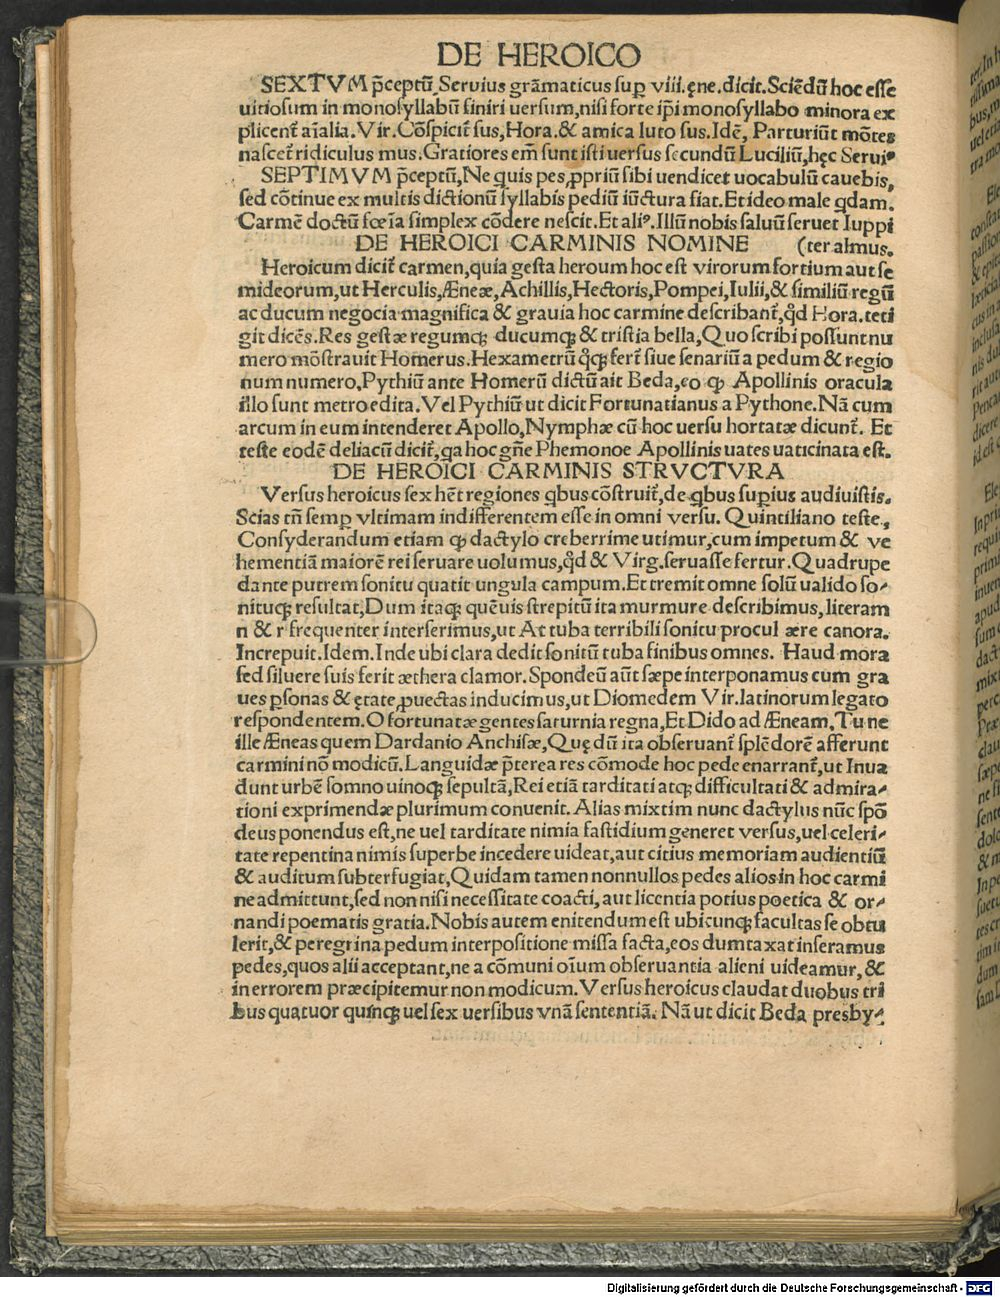 DE HEROICO
SEXTVM p̄ceptū Seruius grāmaticus sup̱ viii. ęne. dicit. Sciēdū hoc esse
uitiosum in monosyllabū finiri uersum, nisi forte ip̄i monosyllabo minora ex
plicent᷑ aīalia. Vir. Cōspicit᷑ sus, Hora. & amica luto sus. Idē, Parturiūt mōtes
nascet᷑ ridiculus mus. Gratiores em̄ sunt isti uersus secundū Luciliū, hęc Serui⁹
SEPTIMVM p̄ceptū, Ne quis pes ꝓpriū sibi uendicet uocabulū cauebis,
sed cōtinue ex multis dictionū syllabis pediū iūctura fiat. Et ideo male qdam.
Carmē doctū fœīa simplex cōdere nescit. Et ali⁹. Illū nobis saluū seruet Iuppi
DE HEROICI CARMINIS NOMINE (ter almus.
Heroicum dicit᷑ carmen, quia gesta heroum hoc est virorum fortium aut se
mideorum, ut Herculis, Æneæ, Achillis, Hectoris, Pompei, Iulii, & similiū regū
ac ducum negocia magnifica & grauia hoc carmine describant᷑, qd̄ Hora. teti
git dicēs. Res gestæ regumqꝫ ducumqꝫ & tristia bella, Quo scribi possunt nu
mero mōstrauit Homerus. Hexametrū qqꝫ fert᷑ siue senariū a pedum & regio
num numero, Pythiū ante Homerū dictū ait Beda, eo ꝙ Apollinis oracula
illo sunt metro edita. Vel Pythiū ut dicit Fortunatianus a Pythone. Nā cum
arcum in eum intenderet Apollo, Nymphæ cū hoc uersu hortatæ dicunt᷑. Et
teste eodē deliacū dicit᷑, qa hoc gn̄e Phemonoe Apollinis uates uaticinata est.
DE HEROICI CARMINIS STRVCTVRA
Versus heroicus sex hēt regiones qbus cōstruit᷑, de qbus sup̱ius audiuistis.
Scias tn̄ semp̱ vltimam indifferentem esse in omni versu. Quintiliano teste,
Consyderandum etiam ꝙ dactylo creberrime utimur, cum impetum & ve
hementiā maiorē rei seruare uolumus, qd̄ & Virg. seruasse fertur. Quadrupe
dante putrem sonitu quatit ungula campum. Et tremit omne solū ualido so-
nituqꝫ resultat, Dum itaqꝫ quēuis strepitū ita murmure describimus, literam
n & r frequenter interserimus, ut At tuba terribili sonitu procul ære canora.
Increpuit. Idem. Inde ubi clara dedit sonitū tuba finibus omnes. Haud mora
sed siluere suis ferit æthera clamor. Spondeū aūt sæpe interponamus cum gra
ues p̱sonas & ętate ꝓuectas inducimus, ut Diomedem Vir. latinorum legato
respondentem. O fortunatæ gentes saturnia regna, Et Dido ad Æneam, Tu ne
ille Æneas quem Dardanio Anchisæ, Quę dū ita obseruant᷑ splēdorē afferunt
carmini nō modicū. Languidæ p̄terea res cōmode hoc pede enarrant᷑, ut Inua
dunt urbē somno uinoqꝫ sepultā, Rei etiā tarditati atqꝫ difficultati & admira-
tioni exprimendæ plurimum conuenit. Alias mixtim nunc dactylus nūc spō
deus ponendus est, ne uel tarditate nimia fastidium generet versus, uel celeri-
tate repentina nimis superbe incedere uideat, aut citius memoriam audientiū
& auditum subterfugiat, Quidam tamen nonnullos pedes alios in hoc carmi
ne admittunt, sed non nisi necessitate coacti, aut licentia potius poetica & or-
nandi poematis gratia. Nobis autem enitendum est ubicunqꝫ facultas se obtu
lerit, & peregrina pedum interpositione missa facta, eos dumtaxat inseramus
pedes, quos alii acceptant, ne a cōmuni oīum obseruantia alieni uideamur, &
in errorem præcipitemur non modicum. Versus heroicus claudat duobus tri
bus quatuor quinqꝫ uel sex uersibus vnā sententiā. Nā ut dicit Beda presby-
Digitalisierung gefördert durch die Deutsche Forschungsgemeinschaft - DFG